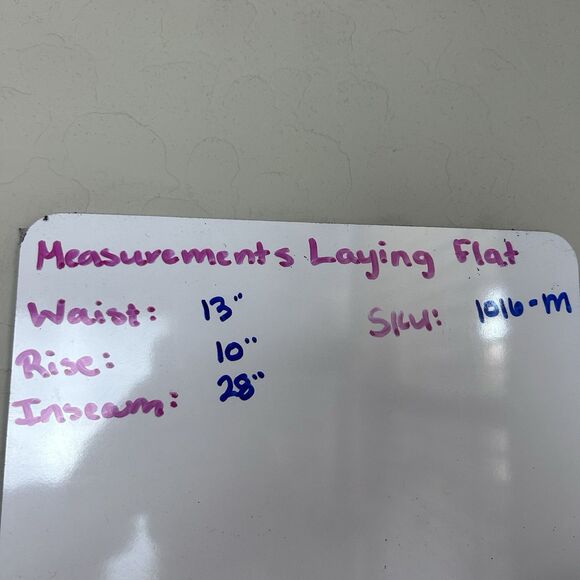 Measurements Laying Flat
Waist: 13" SKU: 1016-M
Rise: 10"
Inseam: 28"